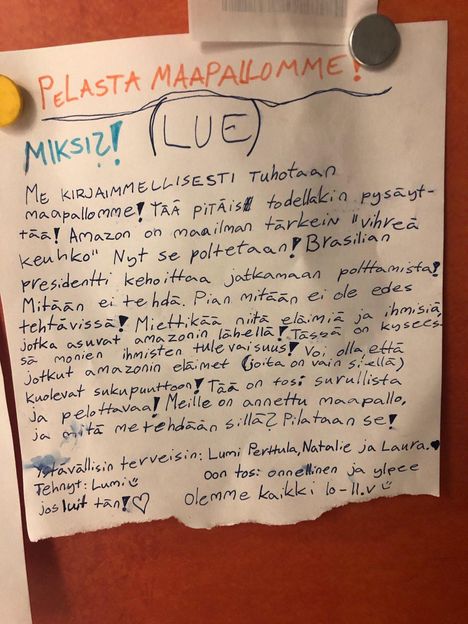 PELASTA MAAPALLOMME!
MIKSI?! (LUE)
ME KIRJAIMMELLISESTI TUHOTAAN
maapallomme! TÄÄ PITÄIS todellakin pysäyt-
tää! Amazon on maailman tärkein "vihreä
keuhko" Nyt se poltetaan! Brasilian
presidentti kehoittaa jatkamaan polttamista!
Mitään ei tehdä. Pian mitään ei ole edes
tehtävissä! Miettikää niitä eläimiä ja ihmisiä
jotka asuvat amazonin lähellä! Tässä on kysees-
sä monien ihmisten tulevaisuus! Voi olla että
jotkut amazonin eläimet (joita on vain siellä)
kuolevat sukupuuttoon! Tää on tosi surullista
ja pelottavaa! Meille on annettu maapallo,
ja mitä me tehdään sillä? Pilataan se!
Ystävällisin terveisin: Lumi Perttula, Natalie ja Laura.♥
Tehnyt: Lumi☺ oon tosi onnellinen ja ylpee
jos luit tän!♡ Olemme kaikki 10-11.v☺